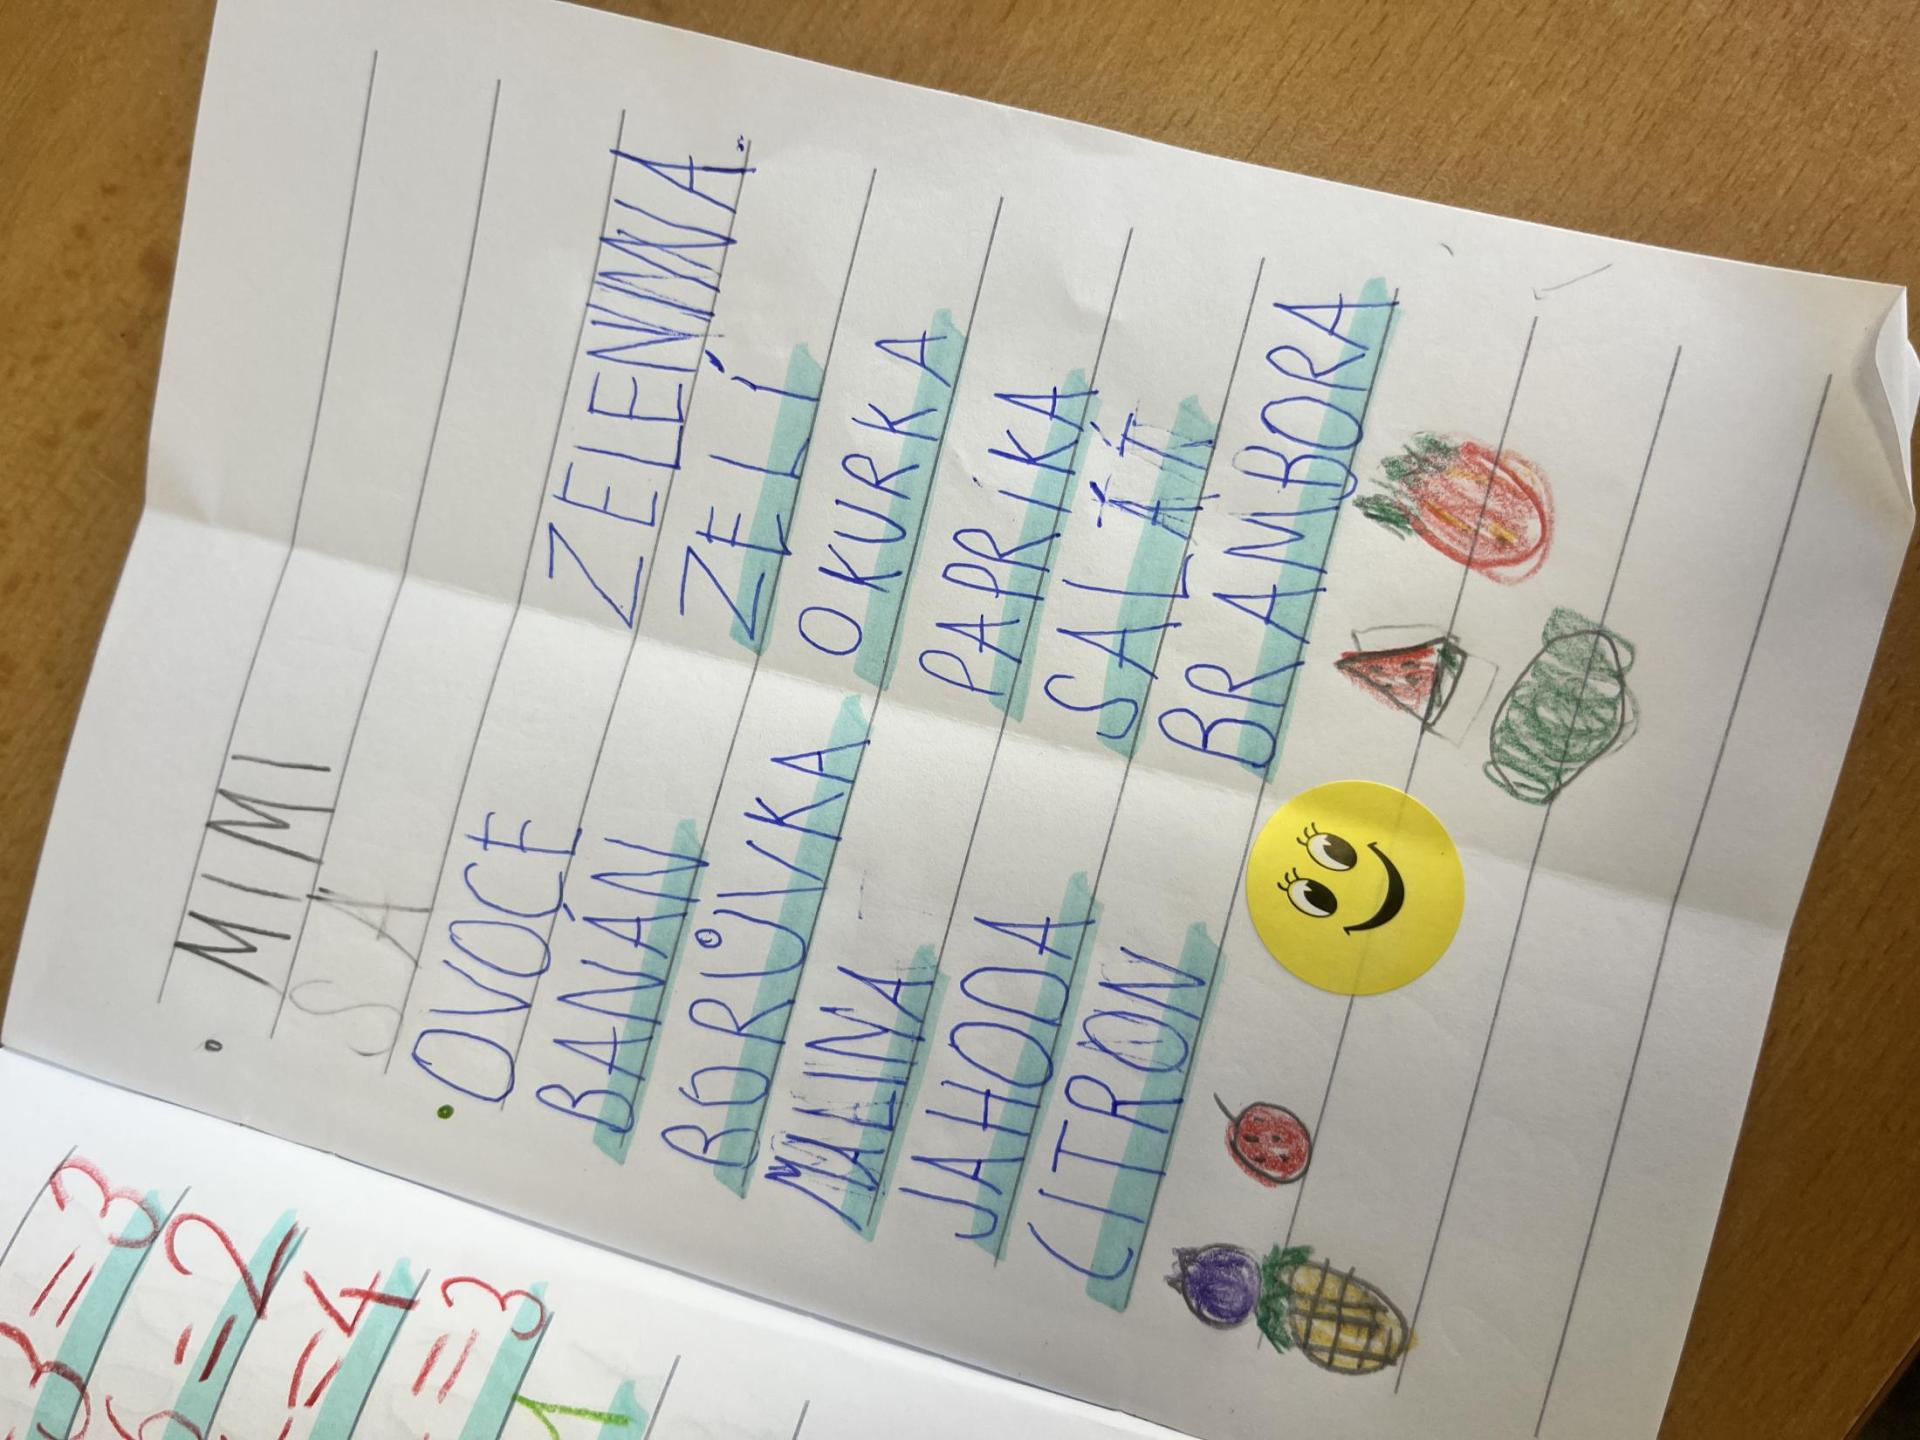 MIMI
SA
OVOCE
BANÁN
BORŮVKA
MALINA
JAHODA
CITRON
ZELENINA
ZELÍ
OKURKA
PAPRIKA
SALÁT
BRAMBORA
3=3
=2
=4
=3
1